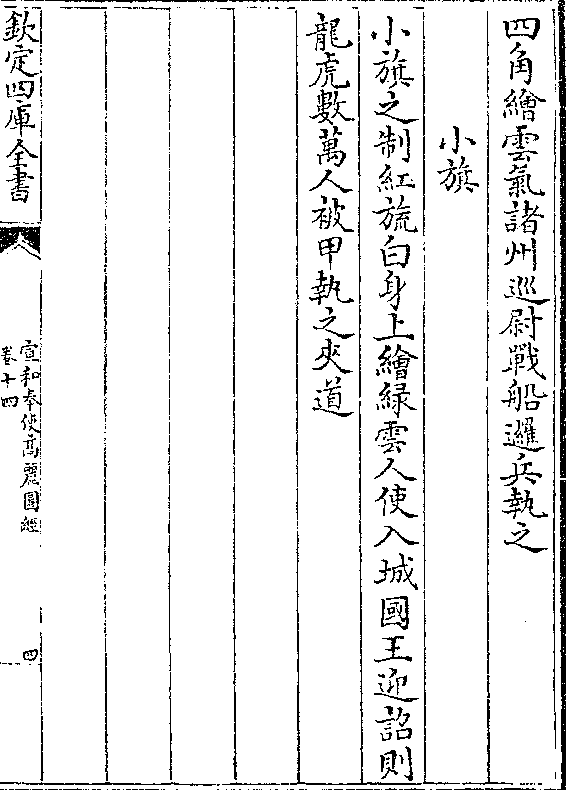 四角繪雲氣諸州巡尉戰船邏兵執之
小旗
小旗之制紅旒白身上繪緑雲人使入城國王迎詔則
龍虎數萬人被甲執之夾道
欽定四庫全書
宣和奉使高麗圖經
卷十四
四